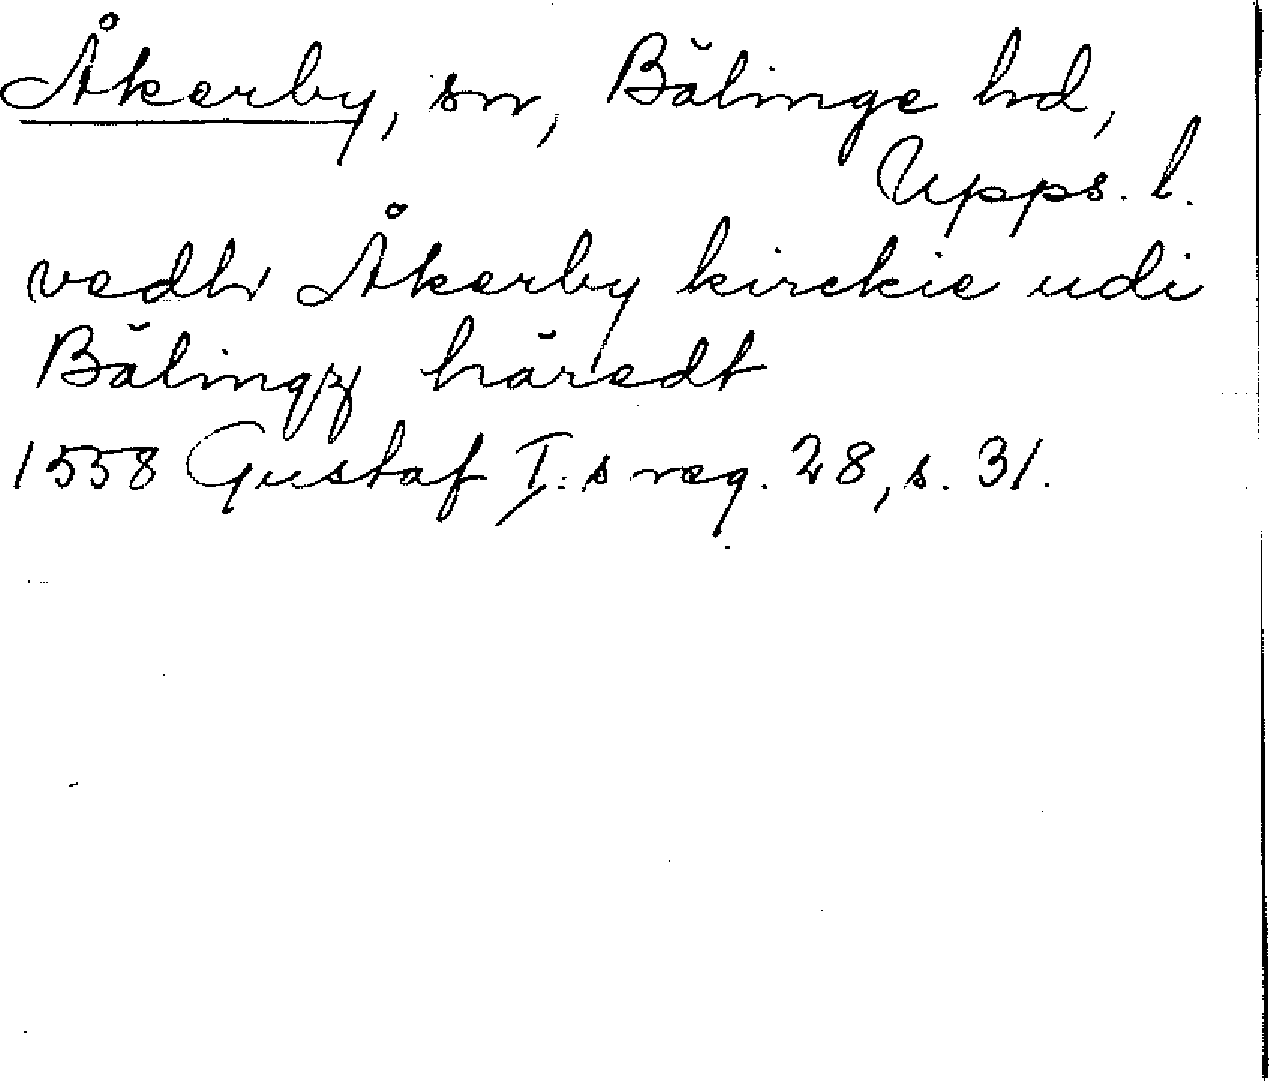 Åkerby, sn, Bälinge hd,
Upps. l.
vedh Åkerby kirckie udi
Bälingz häredt
1558 Gustaf I:s reg. 28, s. 31.